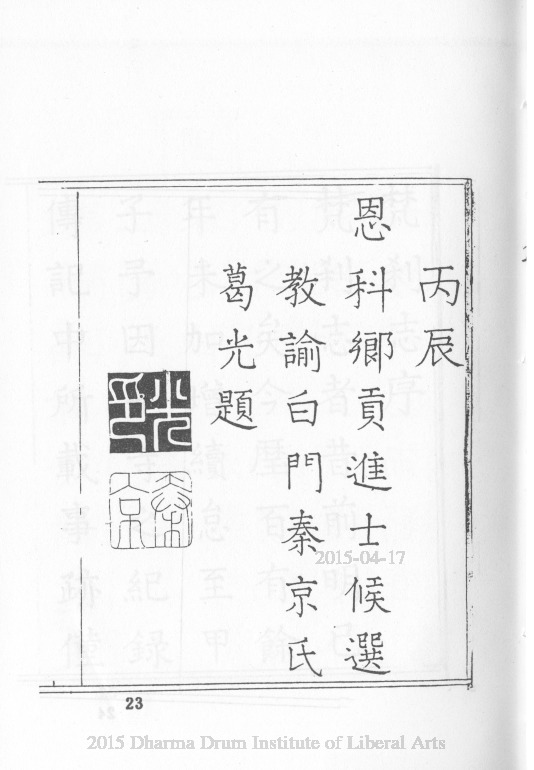 丙辰
恩科鄉貢進士候選
教諭白門秦京氏
葛光題
光印
秦京
2015-04-17
23
2015 Dharma Drum Institute of Liberal Arts